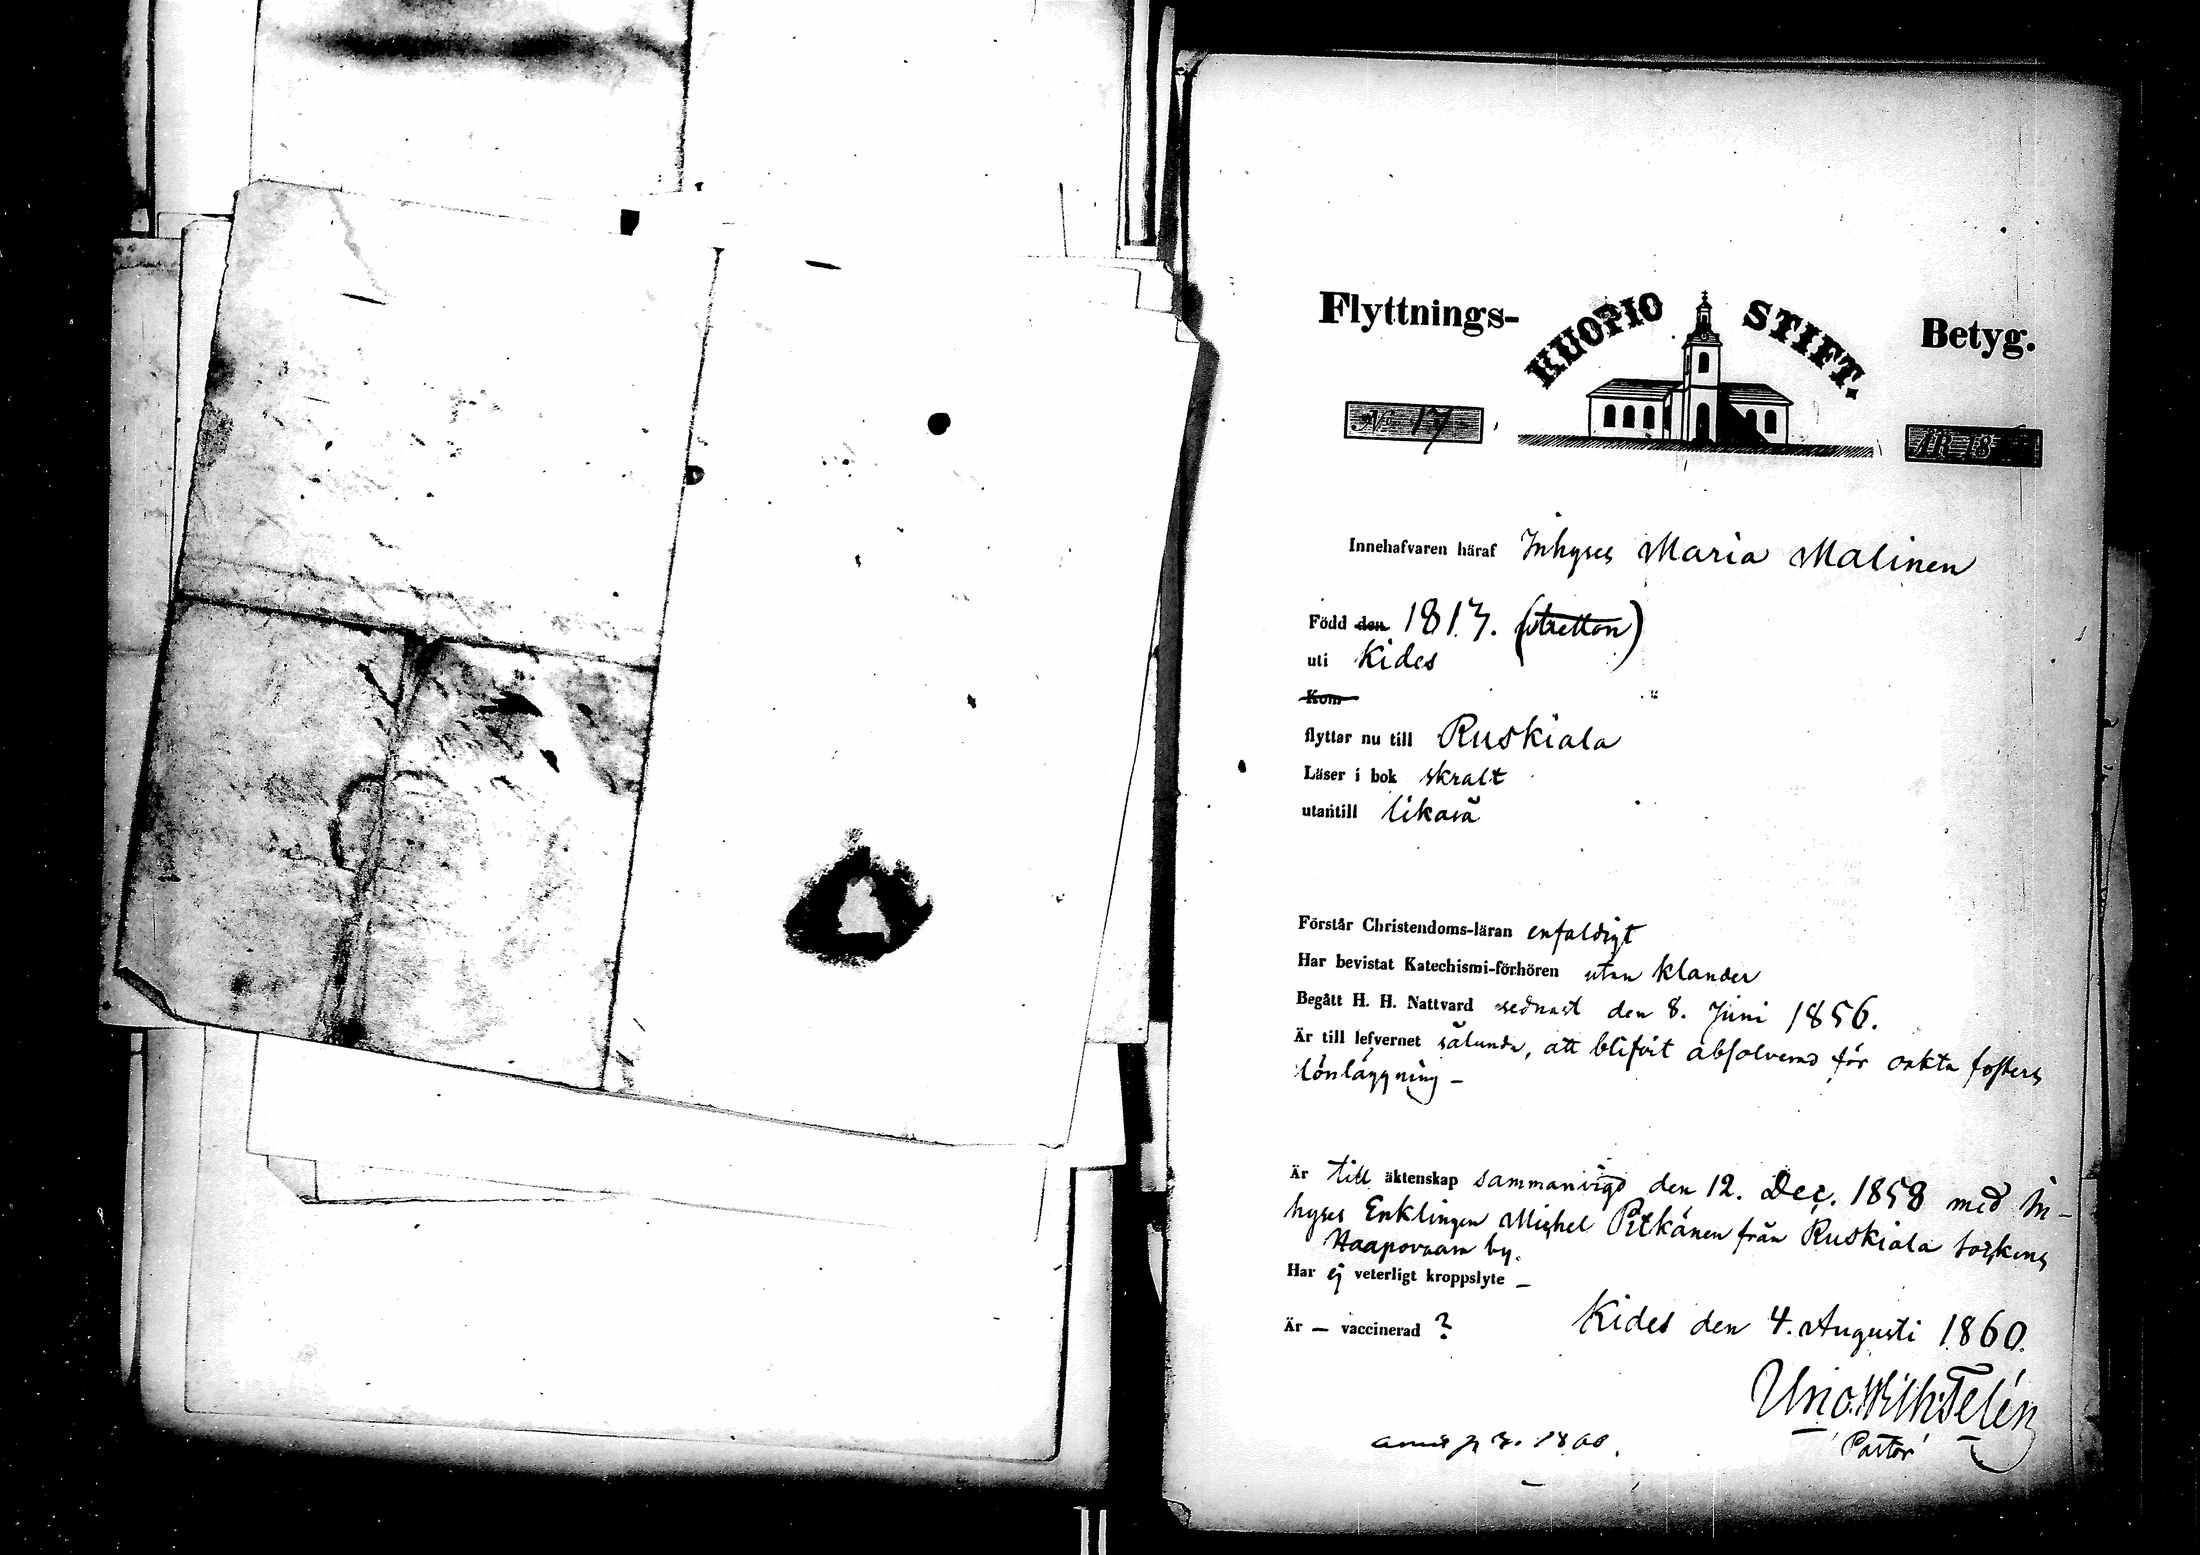 Flyttnings-
KUOPIO STIFT.
Betyg.
No 17
ÅR 18
Innehafvaren häraf Inhyses Maria Malinen
Född den 1813. (tretton)
uti Kides
Kom
flyttar nu till Ruskiala
Läser i bok skralt
utantill likaså
Förstår Christendoms-läran enfaldigt
Har bevistat Katechismi-förhören utan klander
Begått H. H. Nattvard sednast den 8. Juni 1856.
Är till lefvernet sålunda, att blifvit absolverad för oäkta fosters
lönläggning –
Är till äktenskap sammanvigd den 12. Dec. 1858 med In-
hyses Enklingen Michel Pitkänen från Ruskiala Sockens
Haapovaara by.
Har ej veterligt kroppslyte –
Är – vaccinerad ?
Kides den 4. Augusti 1860.
Uno Wilh. Telén
Pastor
1860.